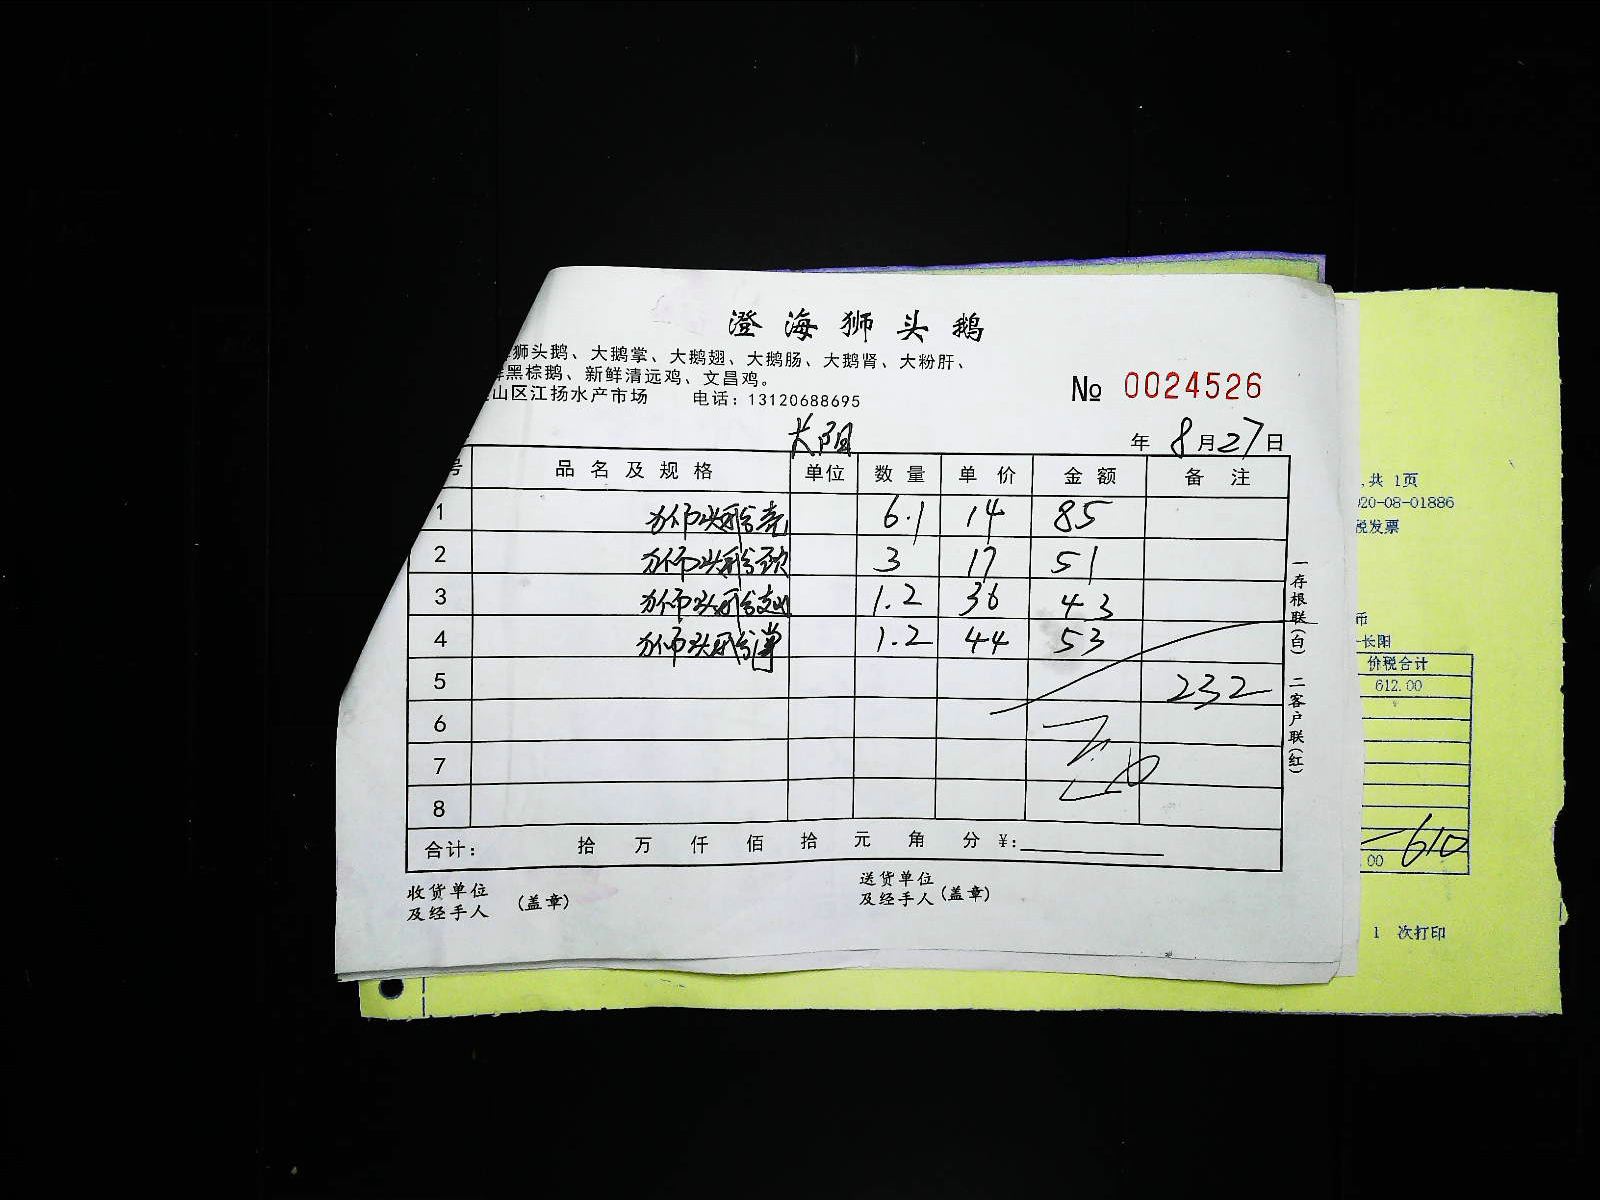 澄海狮头鹅
狮头鹅、大鹅掌、大鹅翅、大鹅肠、大鹅肾、大粉肝、
黑棕鹅、新鲜清远鸡、文昌鸡。
山区江扬水产市场 电话：13120688695
No 0024526
长阳
年 8月27日
号 品名及规格 单位 数量 单价 金额 备注
1 狮头鹅壳 6.1 14 85
2 狮头鹅颈 3 17 51
3 狮头鹅翅 1.2 36 43
4 狮头鹅掌 1.2 44 53
5 232
6
7
8
合计： 拾 万 仟 佰 拾 元 角 分 ¥：
收货单位
及经手人 (盖章)
送货单位
及经手人 (盖章)
一存根联(白) 二客户联(红)
,共 1页
020-08-01886
税发票
币
-长阳
价税合计
612.00
.00 610
1 次打印